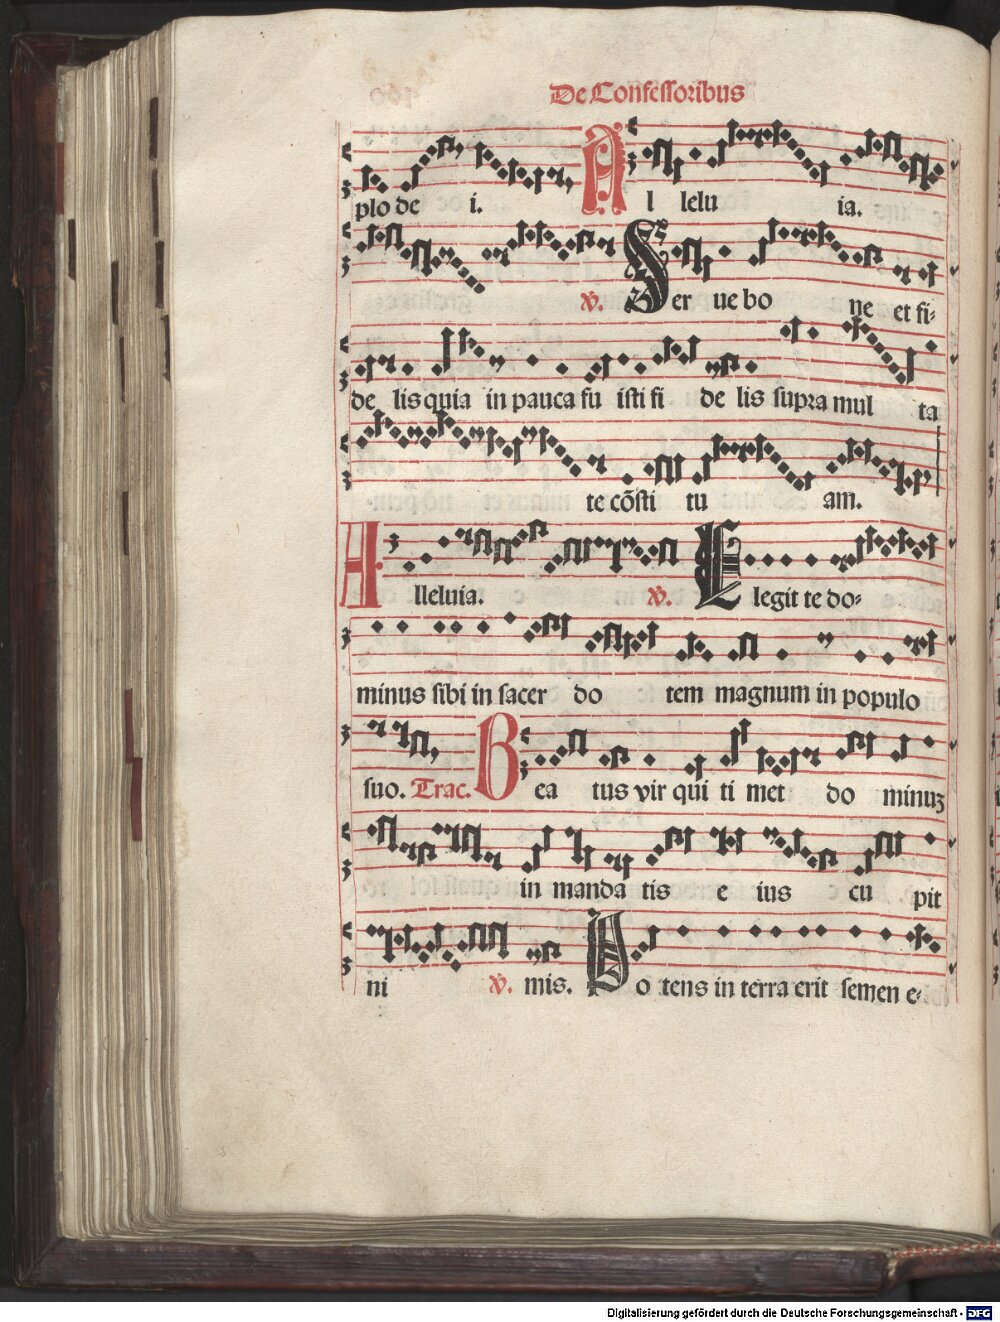 De Confessoribus
plo de i. A l lelu ia.
℣. Ser ue bo ne et fi-
de lis quia in pauca fu isti fi de lis supra mul ta
te cõsti tu am.
Alleluia. ℣. Elegit te do-
minus sibi in sacer do tem magnum in populo
suo. Trac. Bea tus vir qui ti met do minuʒ
in manda tis e ius cu pit
ni ℣. mis. Po tens in terra erit semen e-
Digitalisierung gefördert durch die Deutsche Forschungsgemeinschaft - DFG